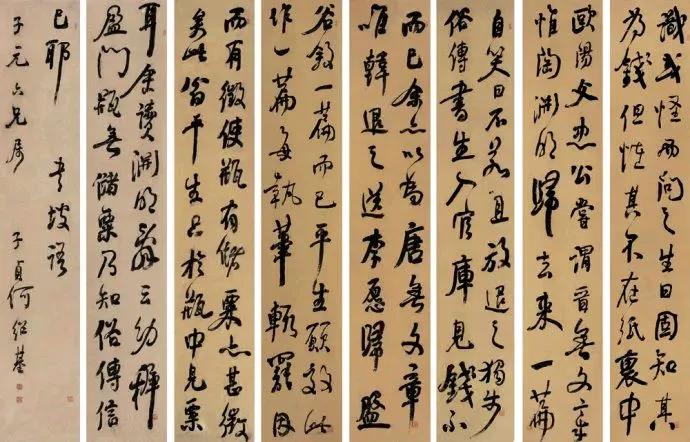 識或怪而問之生曰固知其
為錢但怪其不在紙裹中
歐陽文忠公嘗謂晉無文章
惟陶淵明歸去來一篇
自笑曰不若且放退之獨步
俗傳書生入官庫見錢不
而已余亦以為唐無文章
唯韓退之送李愿歸盤
谷敘一篇而已平生願效此
作一篇每執筆輒罷因
而有徵使瓶有儲粟亦甚微
矣此翁平生只於瓶中見粟
耳讀淵明辭云幼稚
盈門瓶無儲粟乃知俗傳信
已耶 東坡語
子元六兄屬 子貞何紹基